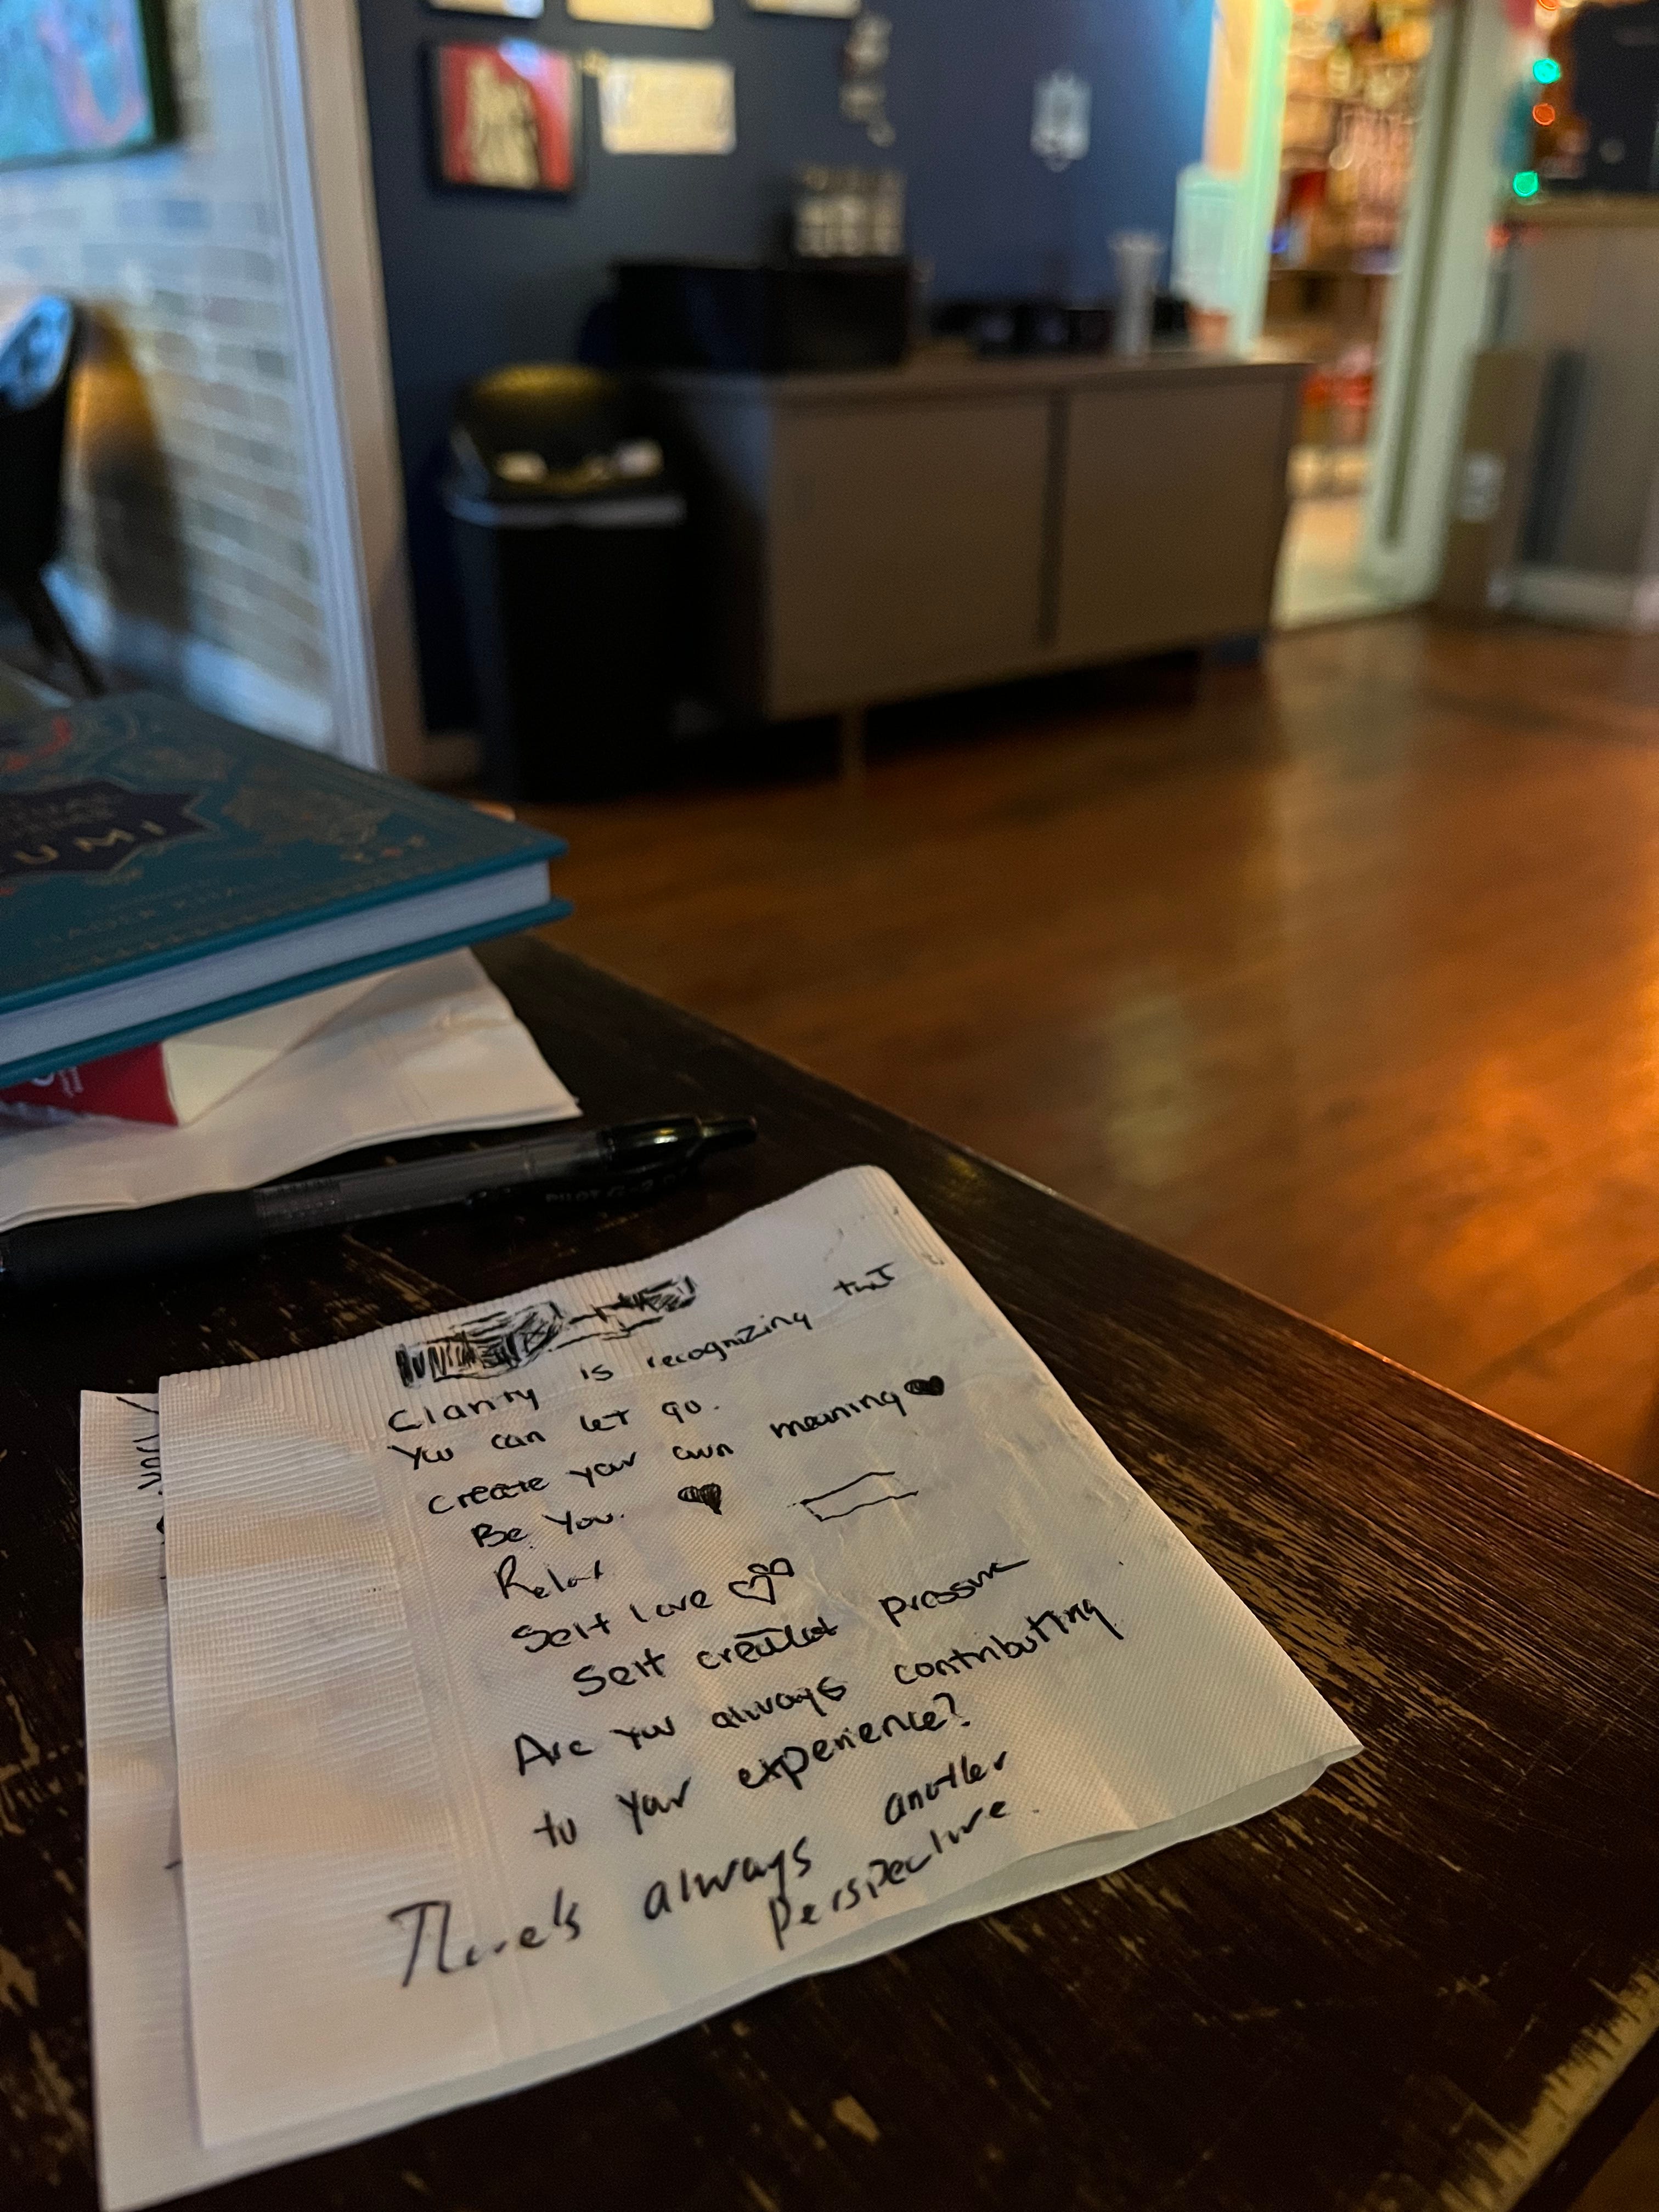 UMI
NADER KHALILI
PILOT G-2
Clarity is recognizing that
You can let go.
Create your own meaning
Be You.
Relax
Self love
Self created pressure
Are you always contributing
to your experience?
There's always another
perspective.